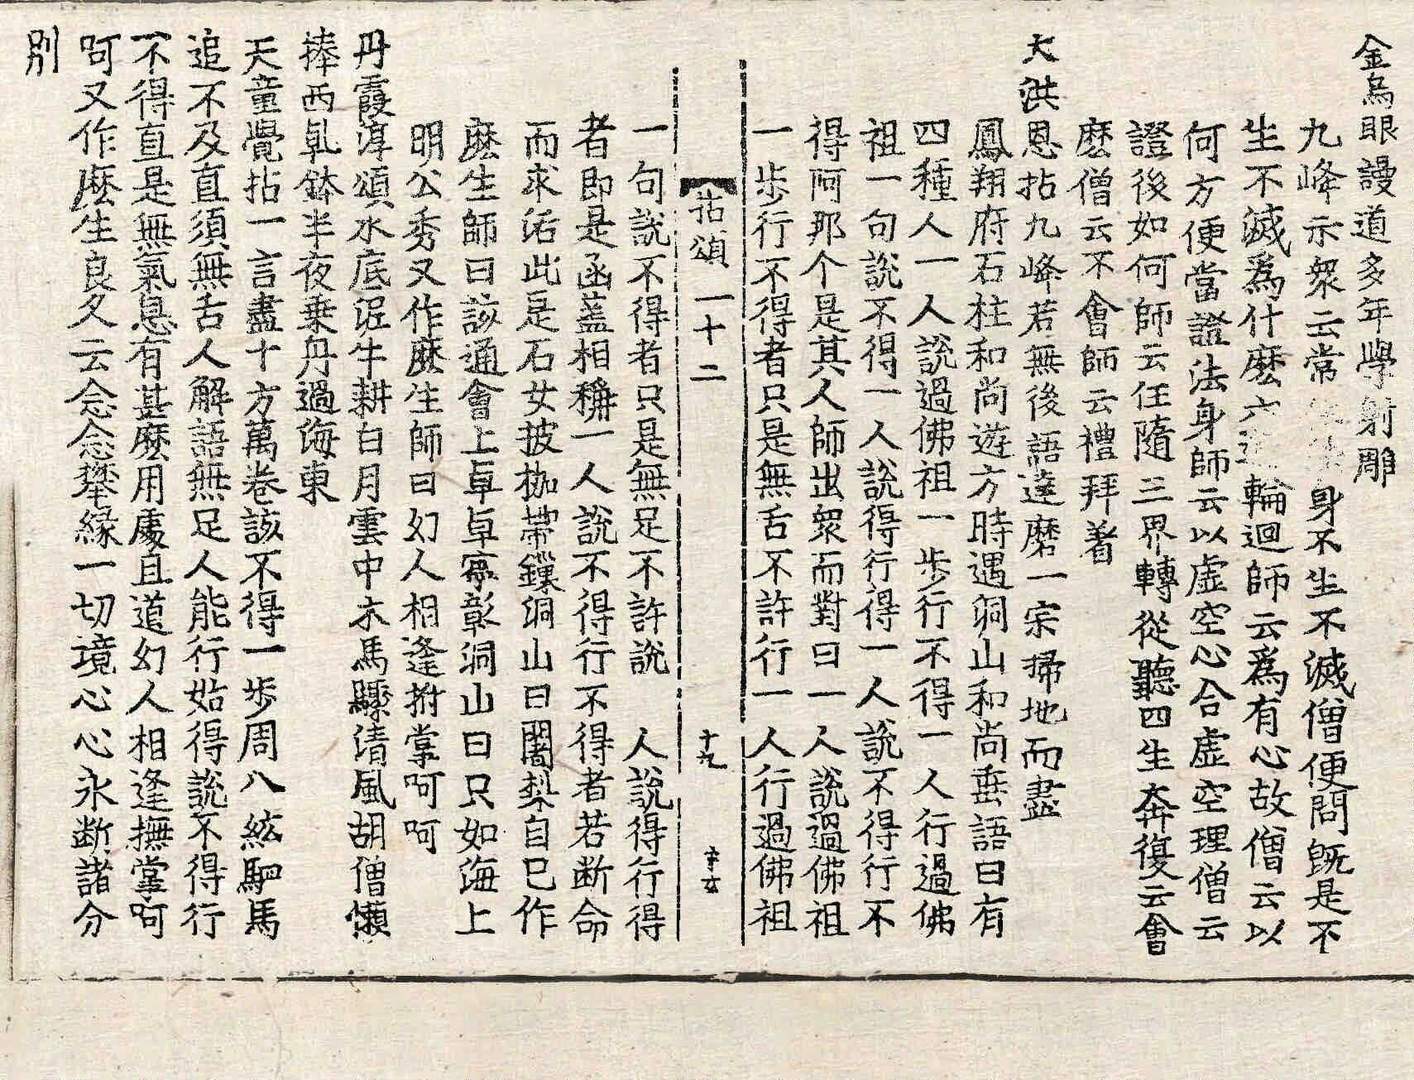 金烏眼謾道多年學射雕
九峰示衆云常身不生不滅僧便問旣是不
生不滅爲什麽六輪迴師云爲有心故僧云以
何方便當證法身師云以虛空心合虛空理僧云
證後如何師云任隨三界轉從聽四生奔復云會
麽僧云不會師云禮拜着
大洪恩拈九峰若無後語達磨一宗掃地而盡
鳳翔府石柱和尚遊方時遇洞山和尚垂語曰有
四種人一人說過佛祖一步行不得一人行過佛
祖一句說不得一人說得行得一人說不得行不
得阿那个是其人師出衆而對曰一人說過佛祖
一步行不得者只是無舌不許行一人行過佛祖
拈頌 一十二 十九
一句說不得者只是無足不許說人說得行得
者即是函蓋相稱一人說不得行不得者若断命
而求活此是石女披枷帶鏁洞山曰闍梨自已作
麽生師曰該通會上卓卓寧彰洞山曰只如海上
明公秀又作麽生師曰幻人相逢拊掌呵呵
丹霞淳頌水底泥牛耕白月雲中木馬驟清風胡僧懶
捧西乹鉢半夜乗舟過海東
天童覺拈一言盡十方萬卷該不得一步周八紘駟馬
追不及直須無舌人解語無足人能行始得說不得行
不得直是無氣息有甚麽用處且道幻人相逢撫掌呵
呵又作麽生良久云念念攀緣一切境心心永断諸分
別